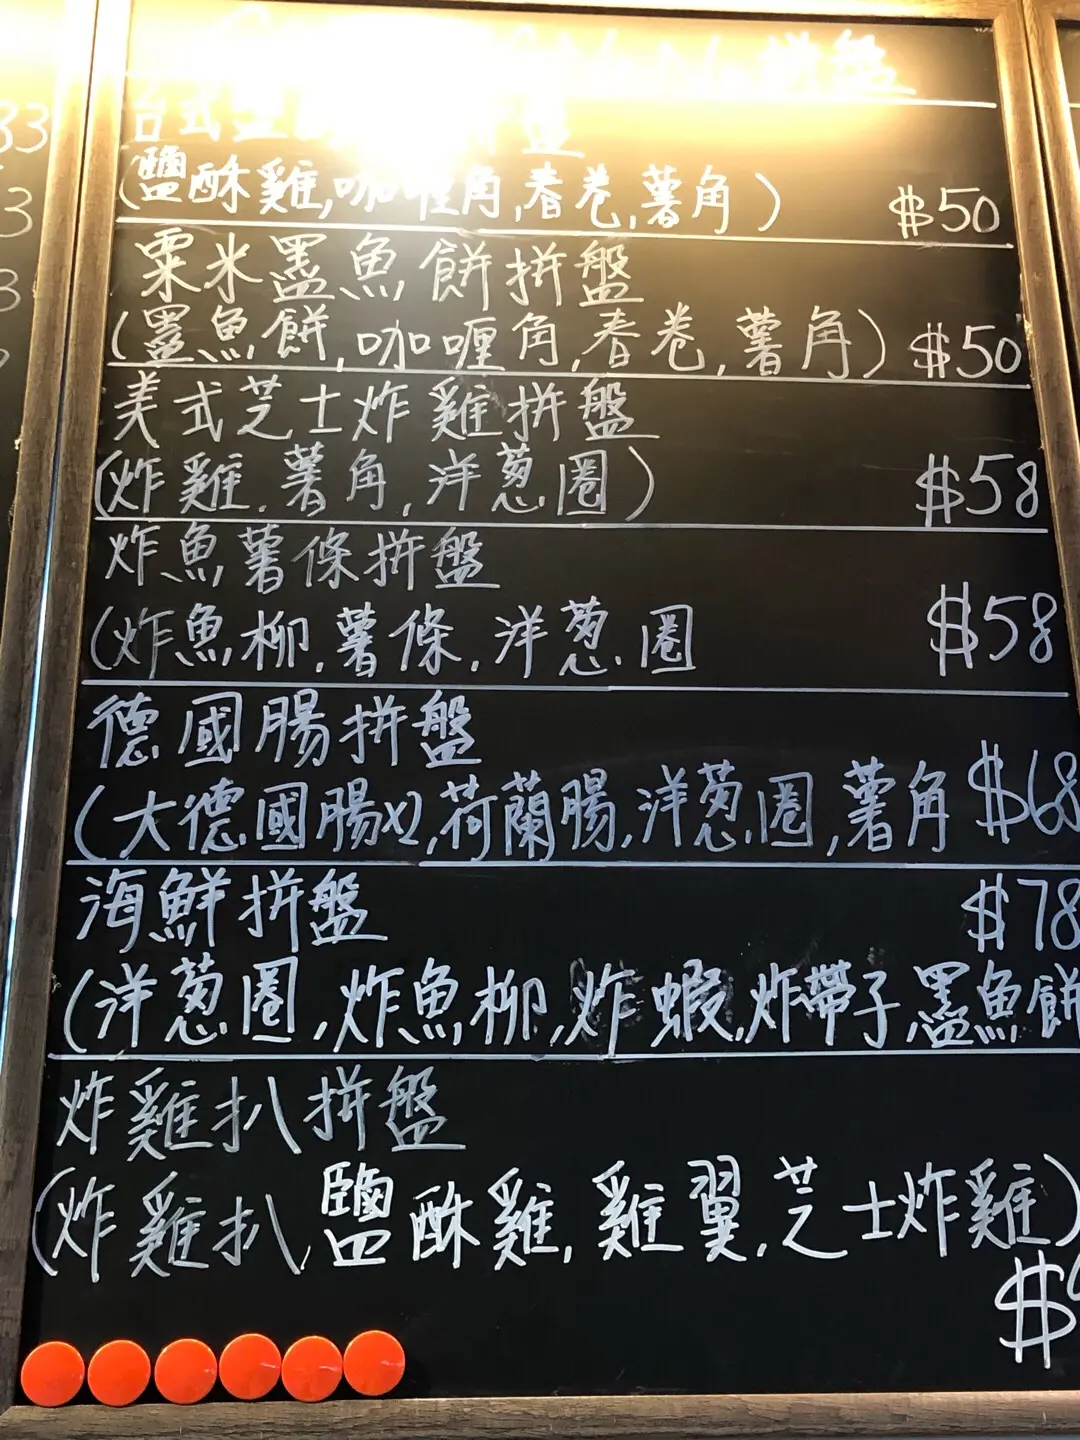 拼盤
台式鹽 拼盤
(鹽酥雞,咖喱角,春卷,薯角) $50
粟米墨魚餅拼盤
(墨魚餅,咖喱角,春卷,薯角) $50
美式芝士炸雞拼盤
(炸雞,薯角,洋葱圈) $58
炸魚薯條拼盤
(炸魚柳,薯條,洋葱圈 $58
德國腸拼盤
(大德國腸x2,荷蘭腸,洋葱圈,薯角 $68
海鮮拼盤 $78
(洋葱圈,炸魚柳,炸蝦,炸帶子,墨魚餅
炸雞扒拼盤
(炸雞扒,鹽酥雞,雞翼,芝士炸雞)
$